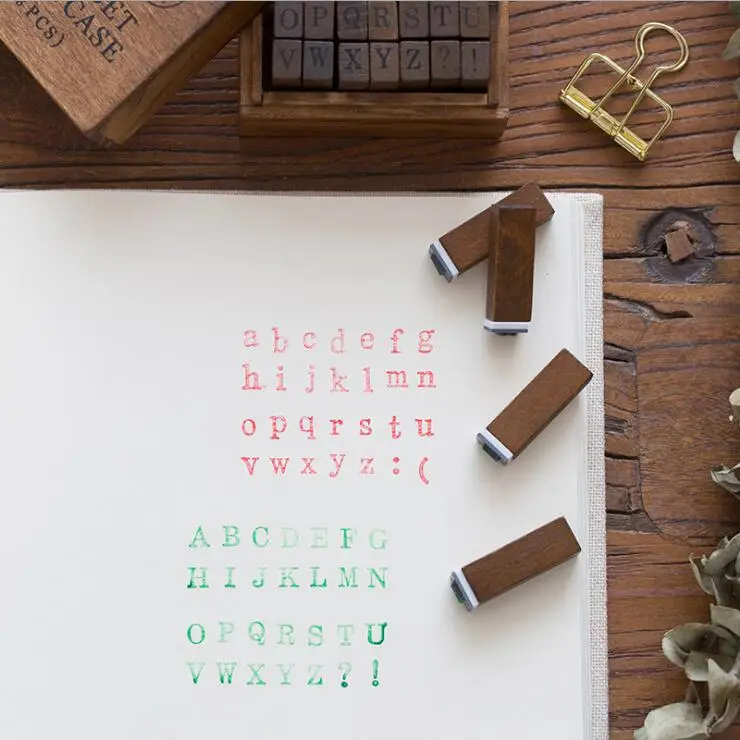 CASE
PCS)
O P Q R S T U
V W X Y Z ? !
a b c d e f g
h i j k l m n
o p q r s t u
v w x y z : (
A B C D E F G
H I J K L M N
O P Q R S T U
V W X Y Z ? !